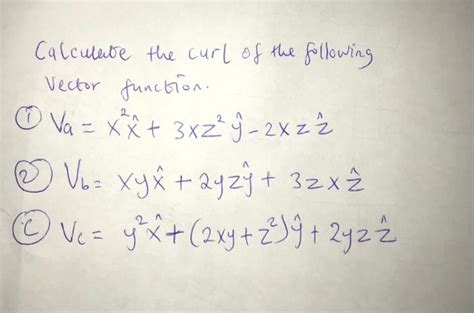 Calculate the curl of the following
Vector function.
① Va = x²x̂ + 3xz²ŷ - 2xzẑ
② Vb = xyx̂ + 2yzŷ + 3zxẑ
Ⓒ Vc = y²x̂ + (2xy + z²)ŷ + 2yzẑ